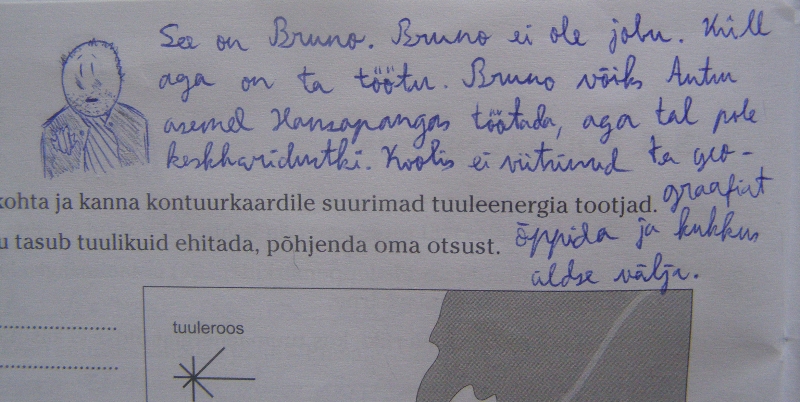 See on Bruno. Bruno ei ole jobu. Küll
aga on ta töötu. Bruno võiks Antsu
asemel Hansapangas töötada, aga tal pole
keskharidustki. Koolis ei viitsinud ta geo-
graafiat
õppida ja kukkus
üldse välja.
kohta ja kanna kontuurkaardile suurimad tuuleenergia tootjad.
u tasub tuulikuid ehitada, põhjenda oma otsust.
tuuleroos